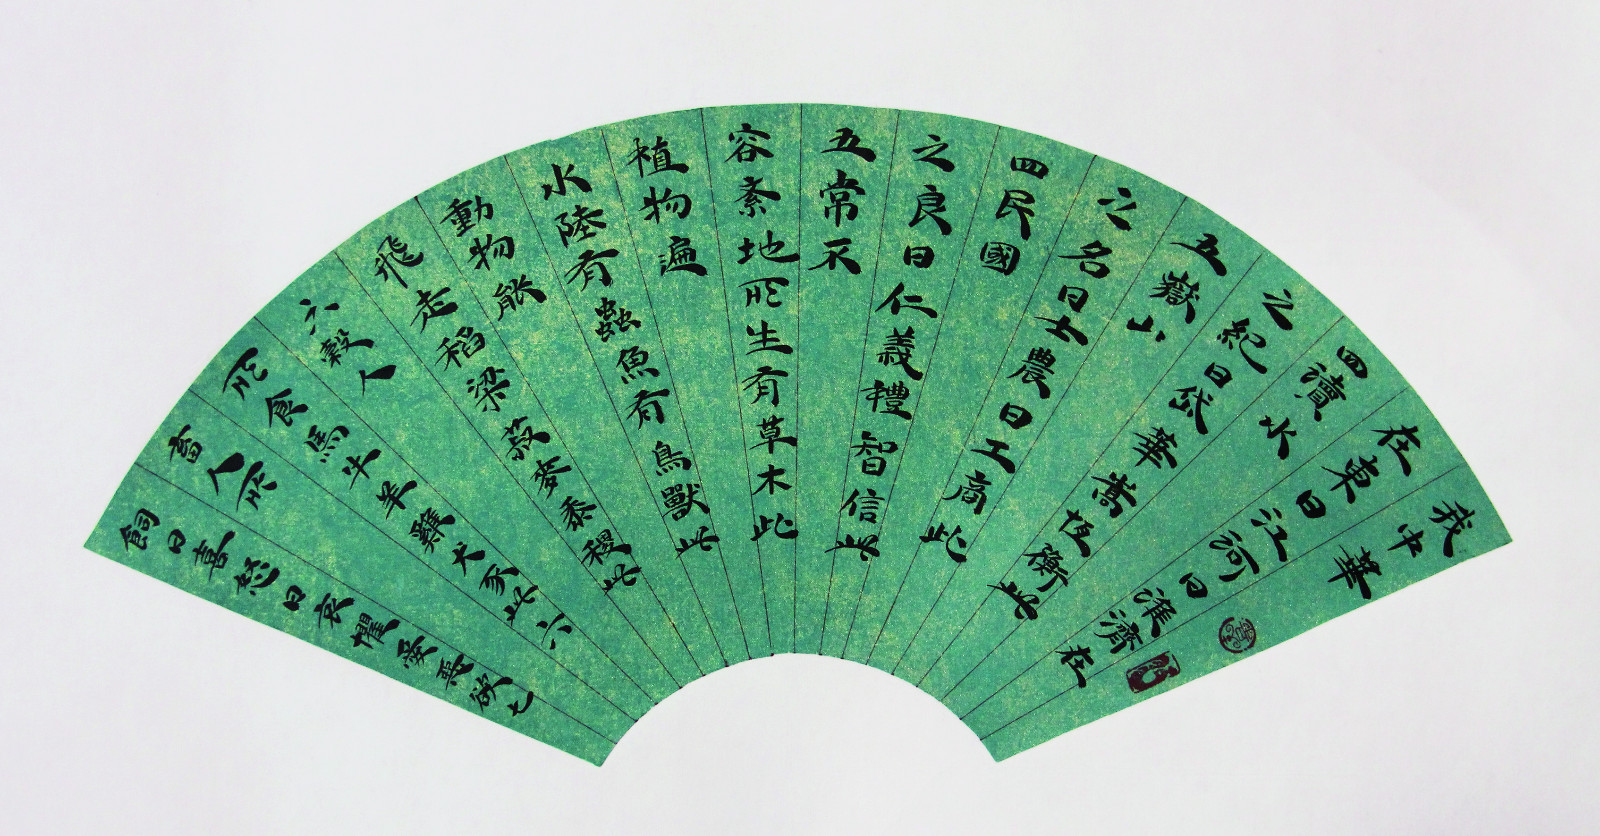 我中華
在東曰江河曰淮濟在
四瀆水
之紀曰岱華嵩恆衡此
五嶽山
之名曰士農曰工商此
四民國
之良曰仁義禮智信此
五常不
容紊地所生有草木此
植物遍
水陸有蟲魚有鳥獸此
動物能
飛走稻梁菽麥黍稷此
六穀人
所食馬牛羊雞犬豕此六
畜人所
飼曰喜怒曰哀懼愛惡欲七